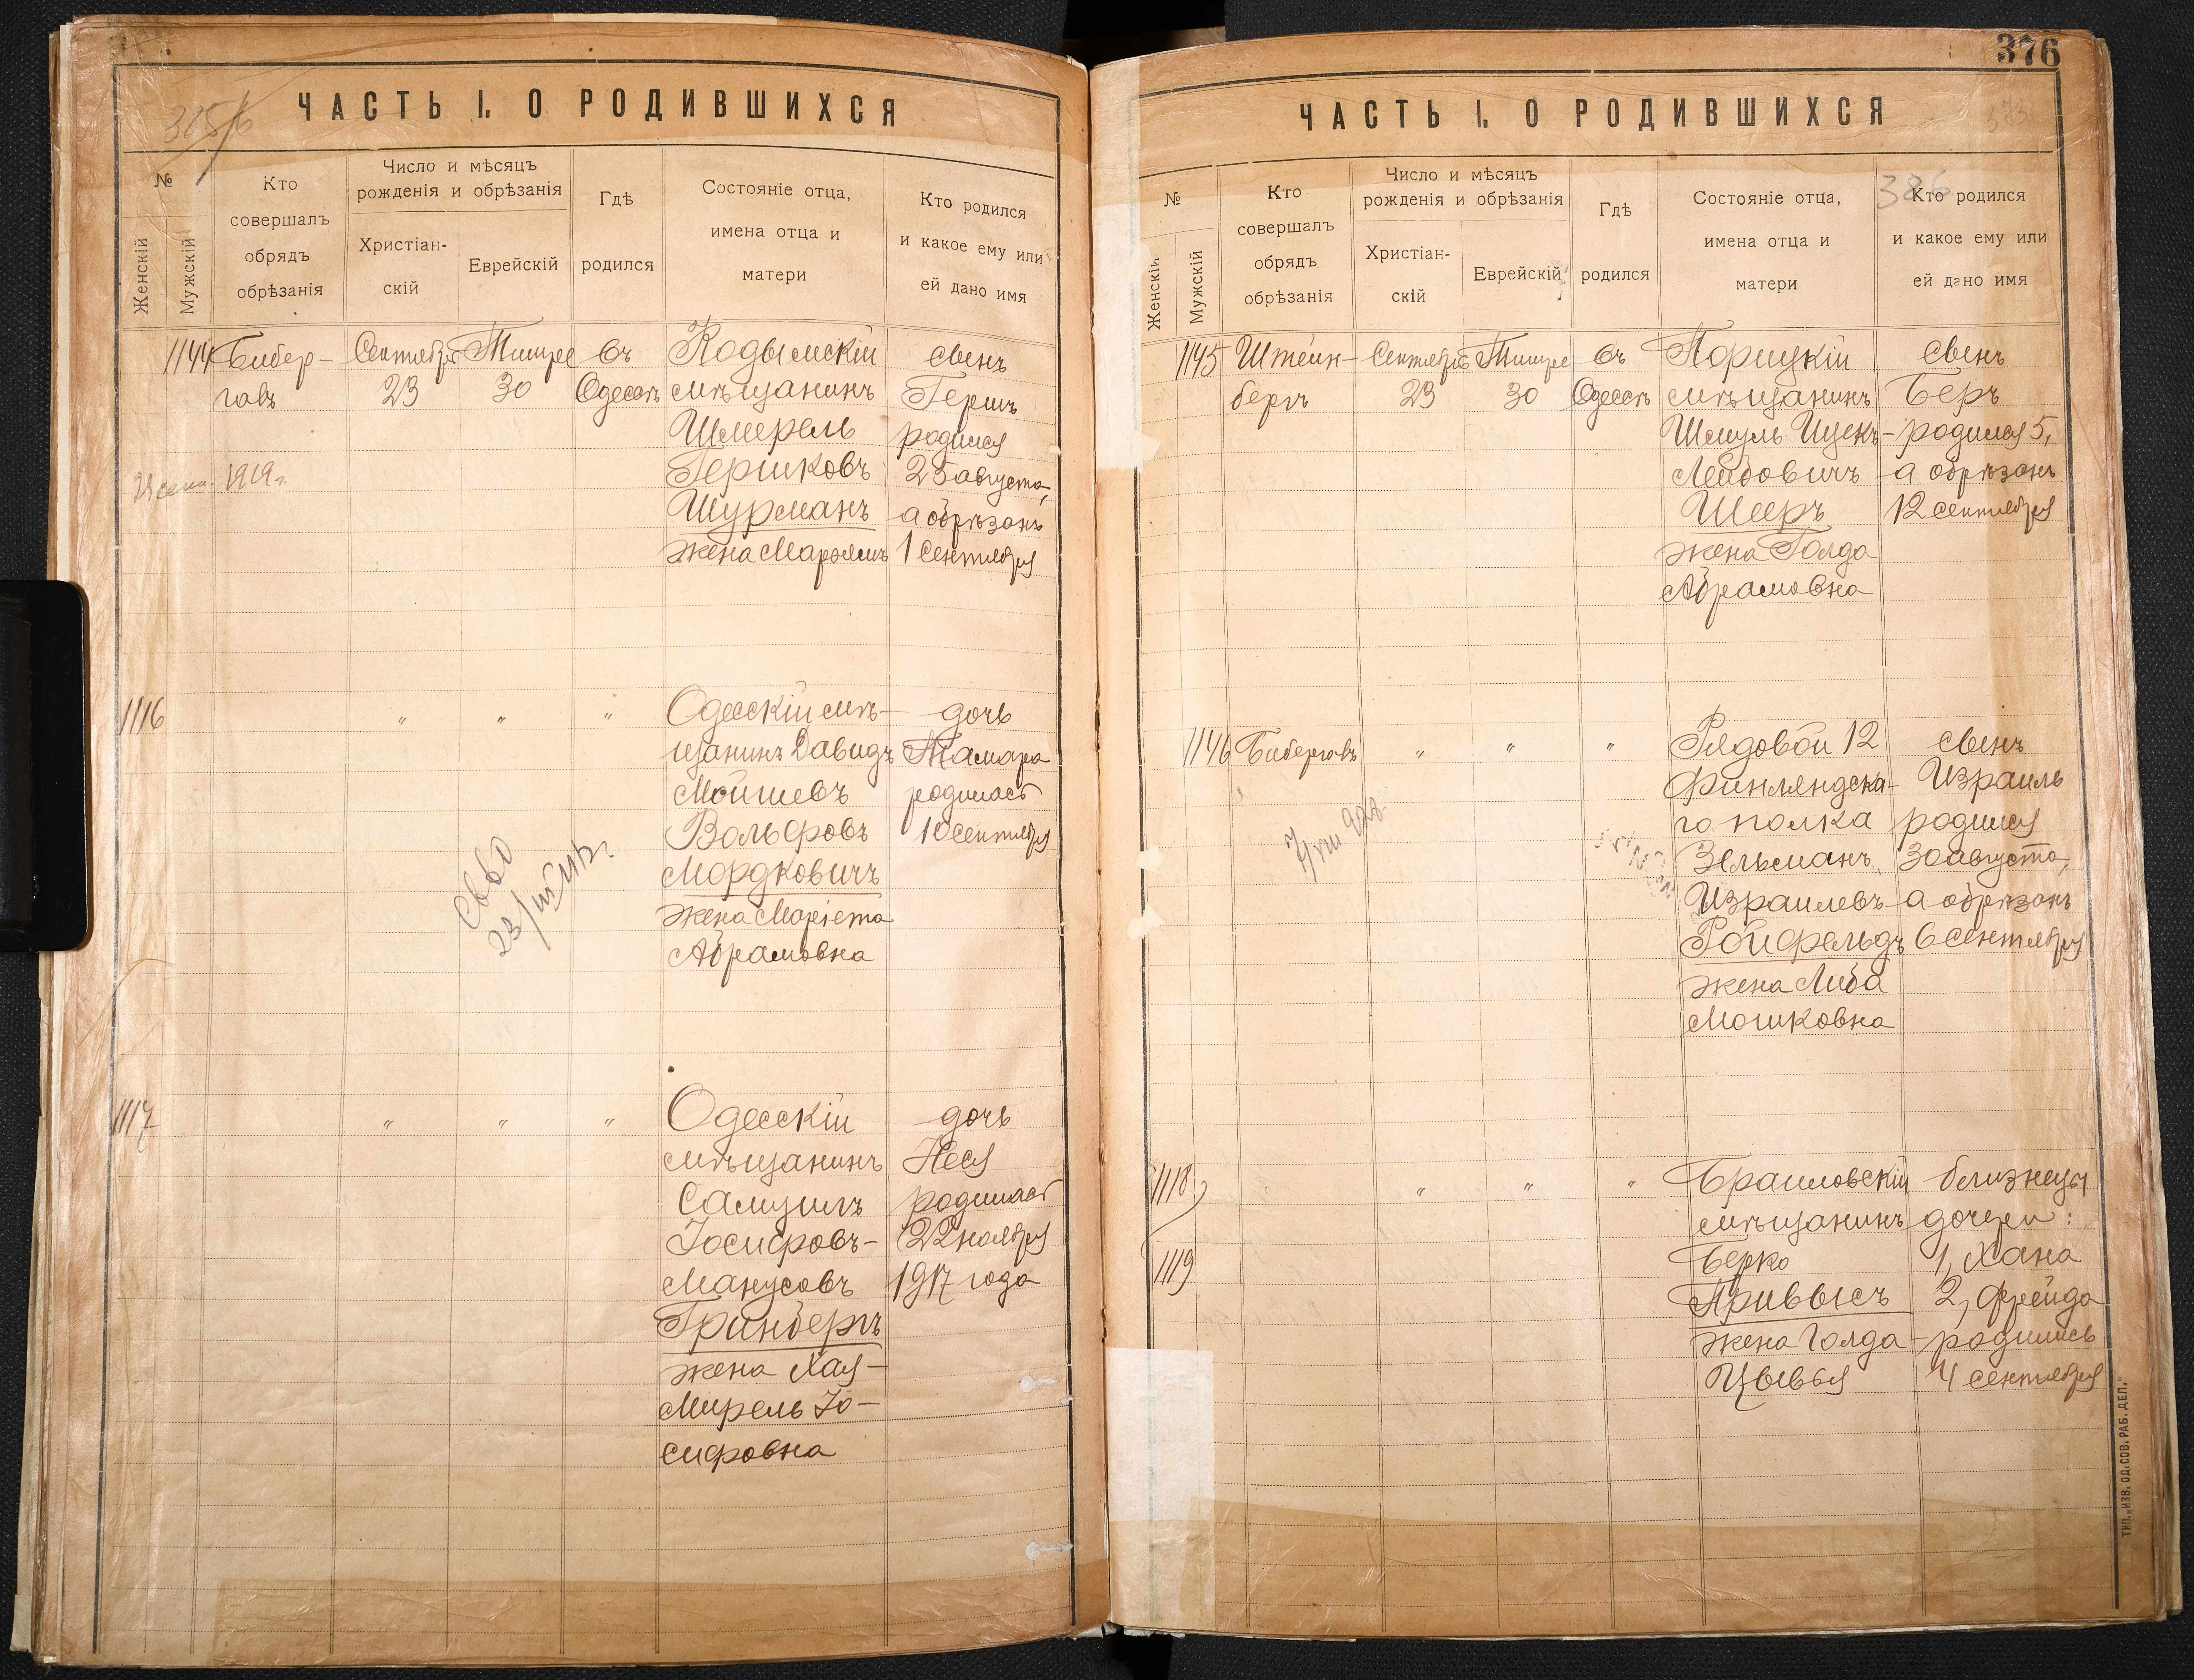 ЧАСТЬ I. О РОДИВШИХСЯ
№
Женскій
Мужскій
Кто
совершалъ
обрядъ
обрѣзанія
Число и мѣсяцъ
рожденія и обрѣзанія
Христіан-
скій
Еврейскій
Гдѣ
родился
Состояніе отца,
имена отца и
матери
Кто родился
и какое ему или
ей дано имя
1144
Бибер-
галъ
Сентября
23
Тишре
30
въ
Одессѣ
Кодымскій
мѣщанинъ
Шмерель
Гершковъ
Шурманъ
жена Марьямъ
сынъ
Гершъ
родился
25 августа,
а обрѣзанъ
1 Сентября
1919 г.
1116
"
"
"
Одесскій мѣ-
щанинъ Давидъ
Мойшевъ
Вольфовъ
Мордковичъ
жена Маріета
Абрамовна
дочь
Тамара
родилась
10 сентября
1117
"
"
"
Одесскій
мѣщанинъ
Самуилъ
Іосифовъ-
Манусовъ
Гринбергъ
жена Хая-
Мирель Іо-
сифовна
дочь
Неся
родилась
22 ноября
1917 года
376
ЧАСТЬ I. О РОДИВШИХСЯ
386
№
Женскій
Мужскій
Кто
совершалъ
обрядъ
обрѣзанія
Число и мѣсяцъ
рожденія и обрѣзанія
Христіан-
скій
Еврейскій
Гдѣ
родился
Состояніе отца,
имена отца и
матери
Кто родился
и какое ему или
ей дано имя
1145
Штейн-
бергъ
Сентября
23
Тишре
30
въ
Одессѣ
Порицкій
мѣщанинъ
Шмуль Ицекъ-
Лейбовичъ
Шееръ
жена Голда
Абрамовна
сынъ
Беръ
родился 5,
а обрѣзанъ
12 сентября
1146
Бибергалъ
"
"
"
Рядовой 12
Финляндска-
го полка
Зельманъ
Израилевъ
Ройфельдъ
жена Либа
Мошковна
сынъ
Израиль
родился
30 августа,
а обрѣзанъ
6 сентября
1118
1119
"
"
"
Браиловскій
мѣщанинъ
Берко
Привысъ
жена Голда
Цывья
близнецы
дочери:
1, Хана
2, Фрейда
родились
4 сентября
ТИП. „ИЗВ. ОД. СОВ. РАБ. ДЕП."